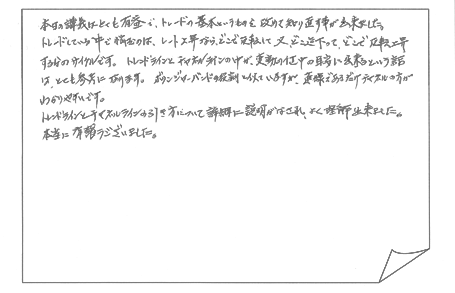 本日の講義はとても有益で、トレードの基本というものを改めて知り直す事が出来ました。
トレードしている中で悩むのは、レート上昇なら、どこで反転して又、どこまで下って、どこで反転上昇
するかのサイクルです。トレンドラインとチャネルラインの中が、変動の付近中の目安に出来るという話
は、とても参考になります。ボリンジャーバンドの役割と似ていますが、直線であるだけチャネルの方が
わかりやすいです。
トレンドラインとチャネルラインの引き方について詳細に説明がなされ、よく理解出来ました。
本当に有難うございました。